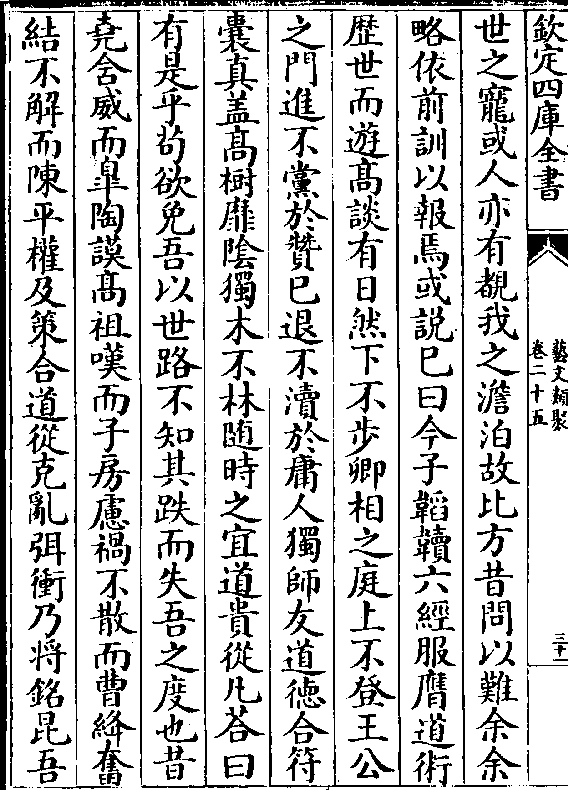 欽定四庫全書
藝文類聚
卷二十五
三十一
世之寵或人亦有覩我之澹泊故比方昔問以難余余
略依前訓以報焉或説已曰今子韜韥六經服膺道術
歴世而遊髙談有日然下不步卿相之庭上不登王公
之門進不黨於贊已退不瀆於庸人獨師友道徳合符
曩真盖髙樹靡陰獨木不林随時之宜道貴從凡荅曰
有是乎茍欲免吾以世路不知其跌而失吾之度也昔
堯舍威而皐陶謨髙祖嘆而子房慮禍不散而曹絳奮
結不解而陳平權及䇿合道從克亂弭衝乃將銘昆吾